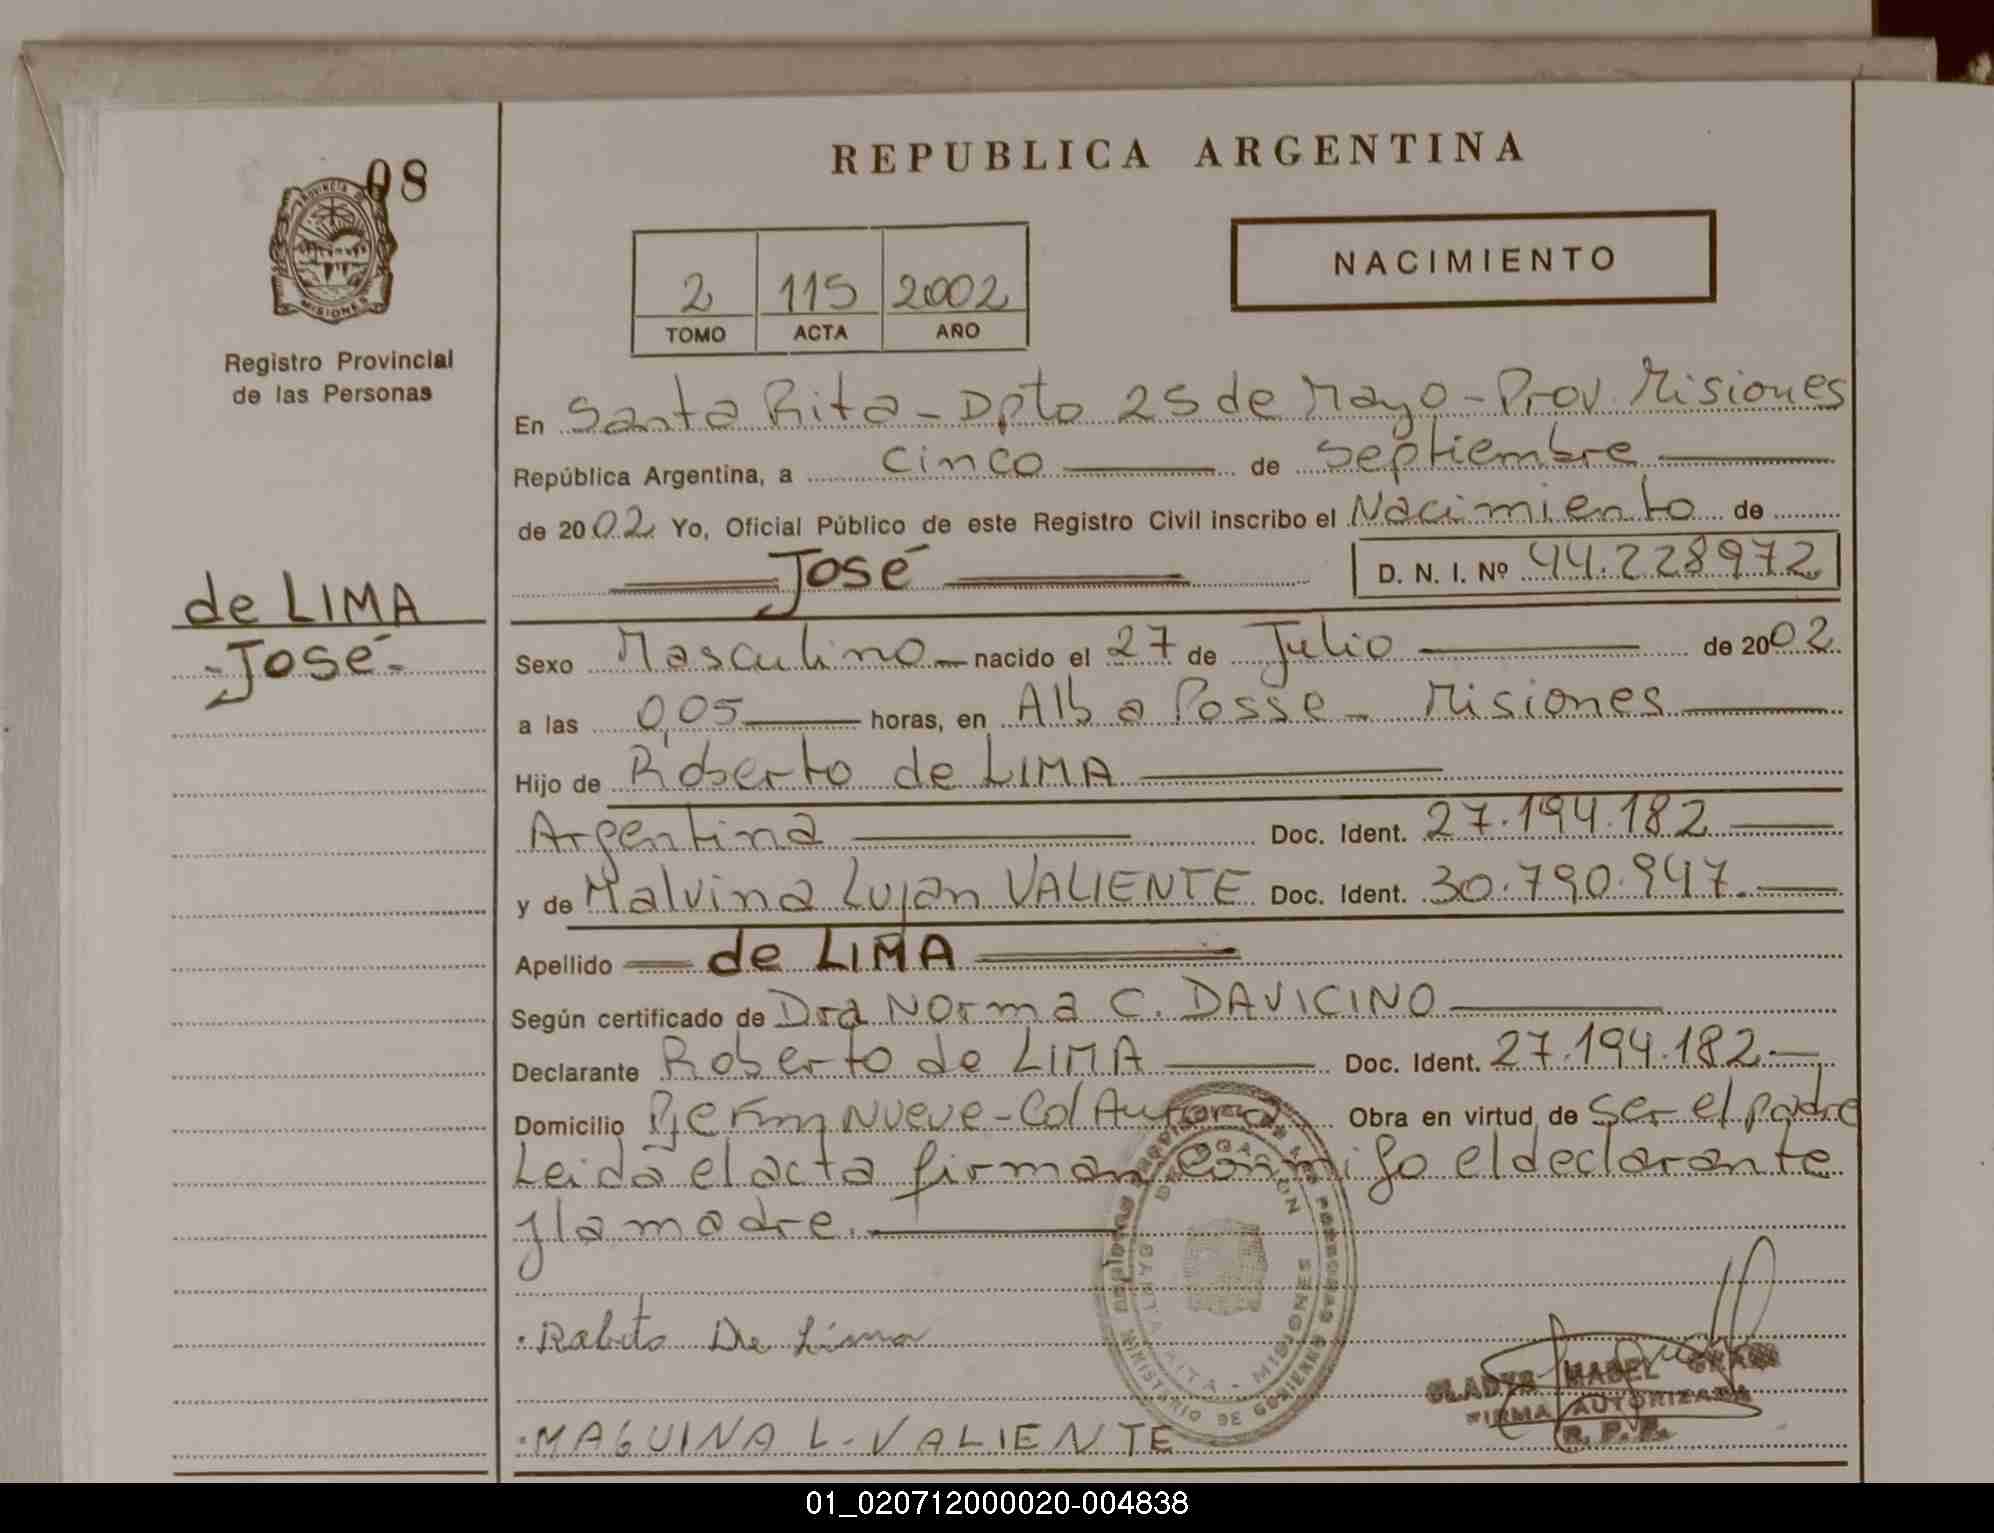 08
PROVINCIA DE
MISIONES
Registro Provincial
de las Personas
de LIMA
-José-
REPUBLICA ARGENTINA
NACIMIENTO
2 115 2002
TOMO ACTA AÑO
En Santa Rita - Dpto 25 de Mayo - Prov. Misiones
República Argentina, a cinco de septiembre
de 2002 Yo, Oficial Público de este Registro Civil inscribo el Nacimiento de
José D. N. I. Nº 44.228972
Sexo Masculino nacido el 27 de Julio de 2002
a las 0,05 horas, en Alba Posse - Misiones
Hijo de Roberto de LIMA
Argentina Doc. Ident. 27.194.182
y de Malvina Lujan VALIENTE Doc. Ident. 30.790.947.
Apellido de LIMA
Según certificado de Dra Norma C. DAVICINO
Declarante Roberto de LIMA Doc. Ident. 27.194.182.
Domicilio Pje Km Nueve - Col Aurora Obra en virtud de ser el padre
Leida el acta firman conmigo el declarante
y la madre.
DELEGACION
SANTA RITA - MISIONES
MINISTERIO DE GOBIERNO
De Lima
MAGUINA L. VALIENTE
GLADYS MABEL
FIRMA AUTORIZADA
R. P. P.
01_020712000020-004838